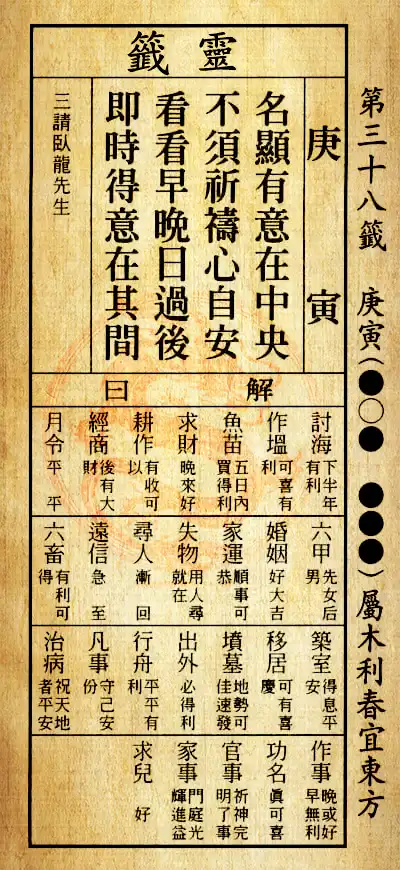 第三十八籤 庚寅(●○● ●●●)屬木利春宜東方
靈籤
庚寅
名顯有意在中央
不須祈禱心自安
看看早晚日過後
即時得意在其間
三請臥龍先生
解曰
討海 下半年有利
作塭 可喜有利
魚苗 五日內買得利
求財 晚來好
耕作 有收可以
經商 後有大財
月令 平平
六甲 先女后男
婚姻 好大吉
家運 順事可恭
失物 用人尋就在
尋人 漸回
遠信 急至
六畜 有利可得
築室 得息平安
移居 可有喜慶
墳墓 地勢可佳速發
出外 必得利
行舟 平平有利
凡事 守己安份
治病 祝天地者平安
作事 晚或好早無利
功名 眞可喜
官事 祈神完明了事
家事 門庭光輝進益
求兒 好